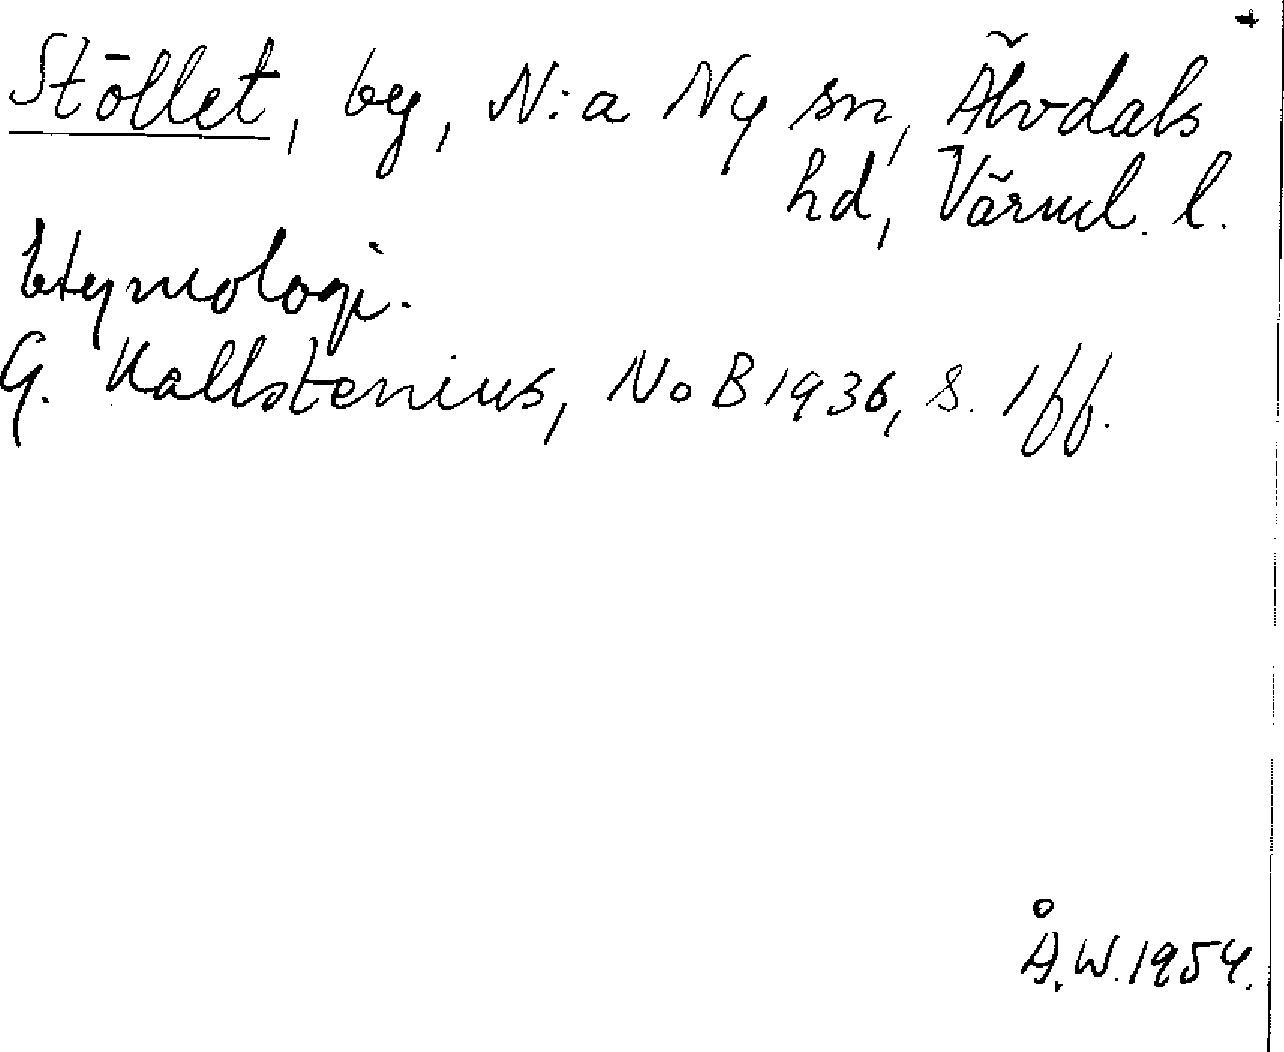 Stöllet, by, N:a Ny sn, Älvdals
hd, Värml. l.
Etymologi.
G. Kallstenius, NoB 1936, s. 1 ff.
Å.W. 1954.